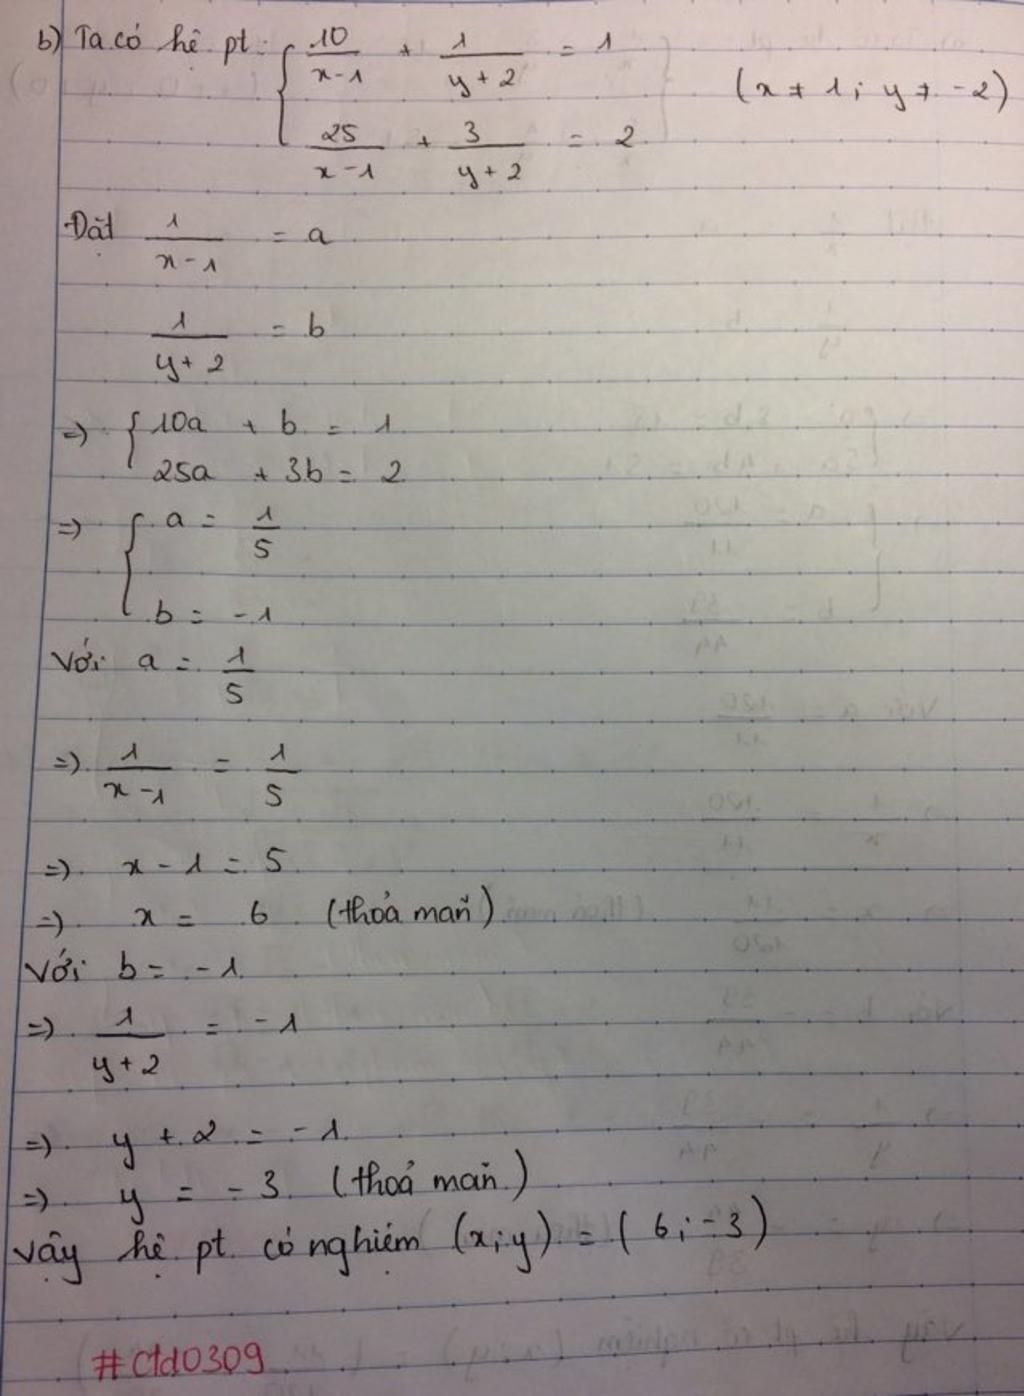 b) Ta có hệ pt: { 10/(x-1) + 1/(y+2) = 1
(x ≠ 1; y ≠ -2)
25/(x-1) + 3/(y+2) = 2
Đặt 1/(x-1) = a
1/(y+2) = b
=> { 10a + b = 1
25a + 3b = 2
=> { a = 1/5
b = -1
Với a = 1/5
=> 1/(x-1) = 1/5
=> x - 1 = 5
=> x = 6 (thoả mãn)
Với b = -1
=> 1/(y+2) = -1
=> y + 2 = -1
=> y = -3 (thoả mãn)
Vậy hệ pt có nghiệm (x;y) = (6;-3)
#ctd0309